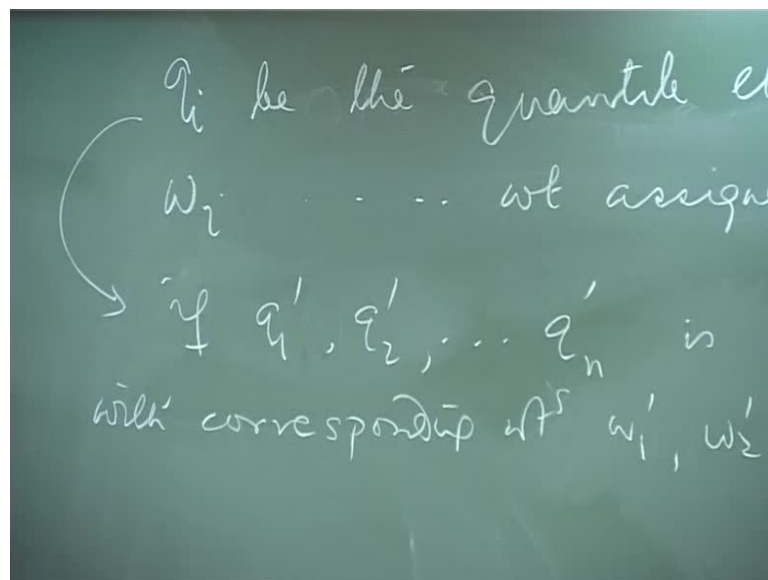 qᵢ be the quantile e
wᵢ .... wt assigne
If q₁', q₂', ... qₙ' is
with corresponding wts w₁', w₂'